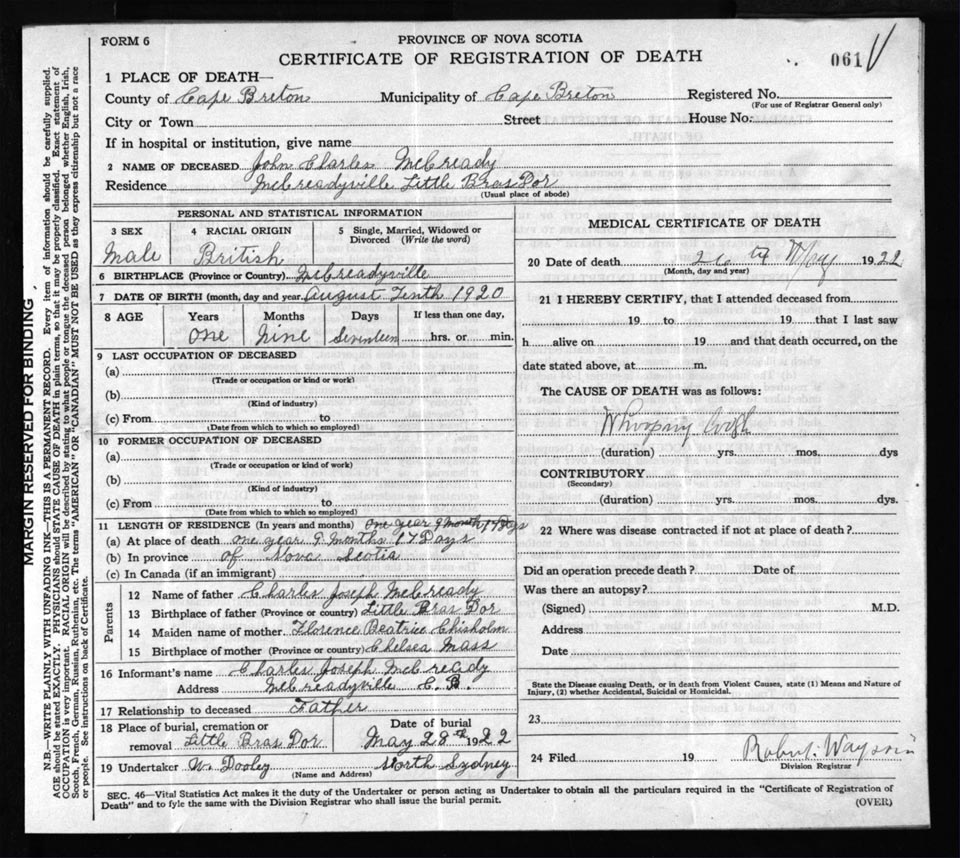 FORM 6
PROVINCE OF NOVA SCOTIA
CERTIFICATE OF REGISTRATION OF DEATH
061
1 PLACE OF DEATH—
County of Cape Breton Municipality of Cape Breton Registered No.
(For use of Registrar General only)
City or Town Street House No.
If in hospital or institution, give name
2 NAME OF DECEASED John Charles McCready
Residence McCreadyville Little Bras Dor
(Usual place of abode)
PERSONAL AND STATISTICAL INFORMATION
3 SEX 4 RACIAL ORIGIN 5 Single, Married, Widowed or Divorced (Write the word)
Male British
6 BIRTHPLACE (Province or Country) McCreadyville
7 DATE OF BIRTH (month, day and year) August Tenth 1920
8 AGE Years Months Days If less than one day,
One Nine Seventeen hrs. or min.
9 LAST OCCUPATION OF DECEASED
(a)
(Trade or occupation or kind of work)
(b)
(Kind of industry)
(c) From to
(Date from which to which so employed)
10 FORMER OCCUPATION OF DECEASED
(a)
(Trade or occupation or kind of work)
(b)
(Kind of industry)
(c) From to
(Date from which to which so employed)
11 LENGTH OF RESIDENCE (In years and months) One year 9 month 17 Days
(a) At place of death one year 9 months 17 Days
(b) In province of Nova Scotia
(c) In Canada (if an immigrant)
Parents
12 Name of father Charles Joseph McCready
13 Birthplace of father (Province or country) Little Bras Dor
14 Maiden name of mother Florence Beatrice Chisholm
15 Birthplace of mother (Province or country) Chelsea Mass
16 Informant's name Charles Joseph McCready
Address McCreadyville C.B.
17 Relationship to deceased Father
18 Place of burial, cremation or removal Little Bras Dor
Date of burial
May 28th 1922
19 Undertaker W. Dooley North Sydney
(Name and Address)
MEDICAL CERTIFICATE OF DEATH
20 Date of death 26 th May 1922
(Month, day and year)
21 I HEREBY CERTIFY, that I attended deceased from
19 to 19 that I last saw
h alive on 19 and that death occurred, on the
date stated above, at m.
The CAUSE OF DEATH was as follows:
Whooping Cough
(duration) yrs. mos. dys
CONTRIBUTORY
(Secondary)
(duration) yrs. mos. dys.
22 Where was disease contracted if not at place of death?
Did an operation precede death? Date of
Was there an autopsy?
(Signed) M.D.
Address
Date
State the Disease causing Death, or in death from Violent Causes, state (1) Means and Nature of
Injury, (2) whether Accidental, Suicidal or Homicidal.
23
24 Filed 19
Division Registrar
SEC. 46—Vital Statistics Act makes it the duty of the Undertaker or person acting as Undertaker to obtain all the particulars required in the "Certificate of Registration of
Death" and to fyle the same with the Division Registrar who shall issue the burial permit.
(OVER)
MARGIN RESERVED FOR BINDING
N.B.—WRITE PLAINLY WITH UNFADING INK—THIS IS A PERMANENT RECORD. Every item of information should be carefully supplied.
AGE should be stated EXACTLY. PHYSICIANS should STATE CAUSE OF DEATH in plain terms, so that it may be properly classified. Exact statement of
OCCUPATION is very important. RACIAL ORIGIN will be described by stating to what people or tongue the deceased person belonged whether English, Irish,
Scotch, French, German, Russian, Ruthenian, etc. The terms "AMERICAN" OR "CANADIAN" MUST NOT BE USED as they express citizenship but not a race
or people. See instructions on back of Certificate.